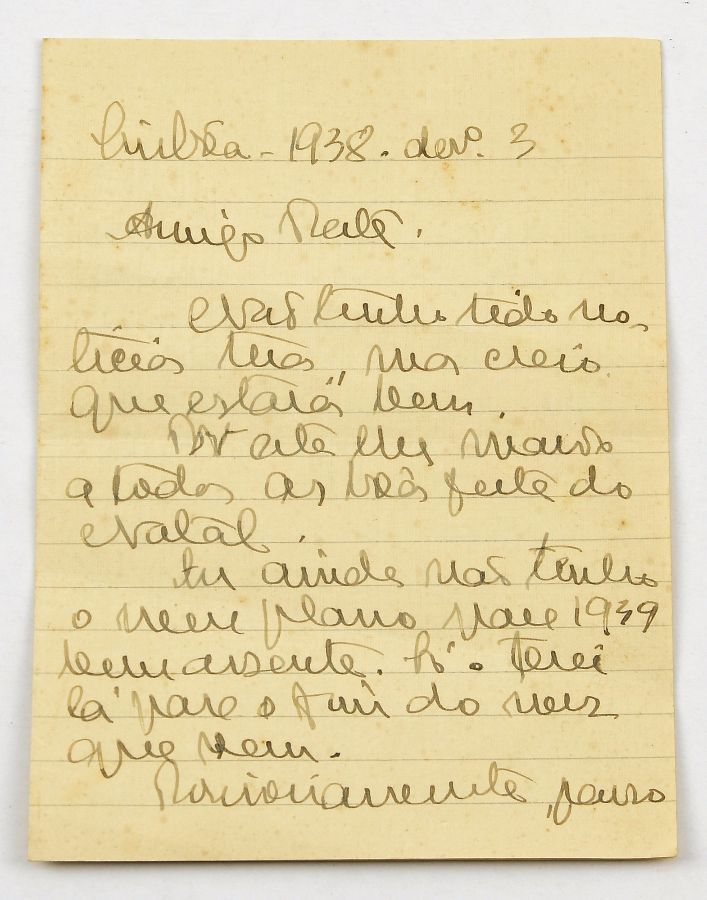 Lisbôa - 1938. dezº. 3
Amigo
Não tenho tido no-
ticias tuas, mas creio
que estarás bem.
Por este lhes mando
a todos as bôas festas do
Natal.
Eu ainda não tenho
o meu plano para 1939
bem assente. Só o terei
lá para o fim do mez
que vem.
Provisoriamente, penso